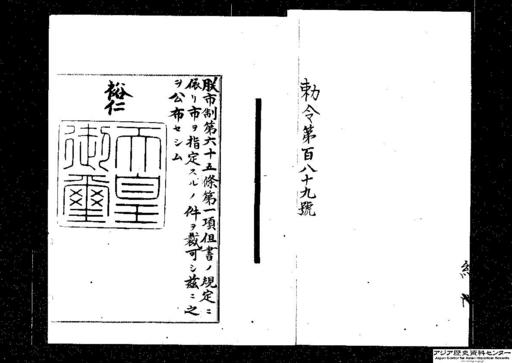 勅令第百八十九號
朕市制第六十五條第一項但書ノ規定ニ
依リ市ヲ指定スルノ件ヲ裁可シ茲ニ之
ヲ公布セシム
裕仁
天皇
御璽
アジア歴史資料センター
Japan Center for Asian Historical Records